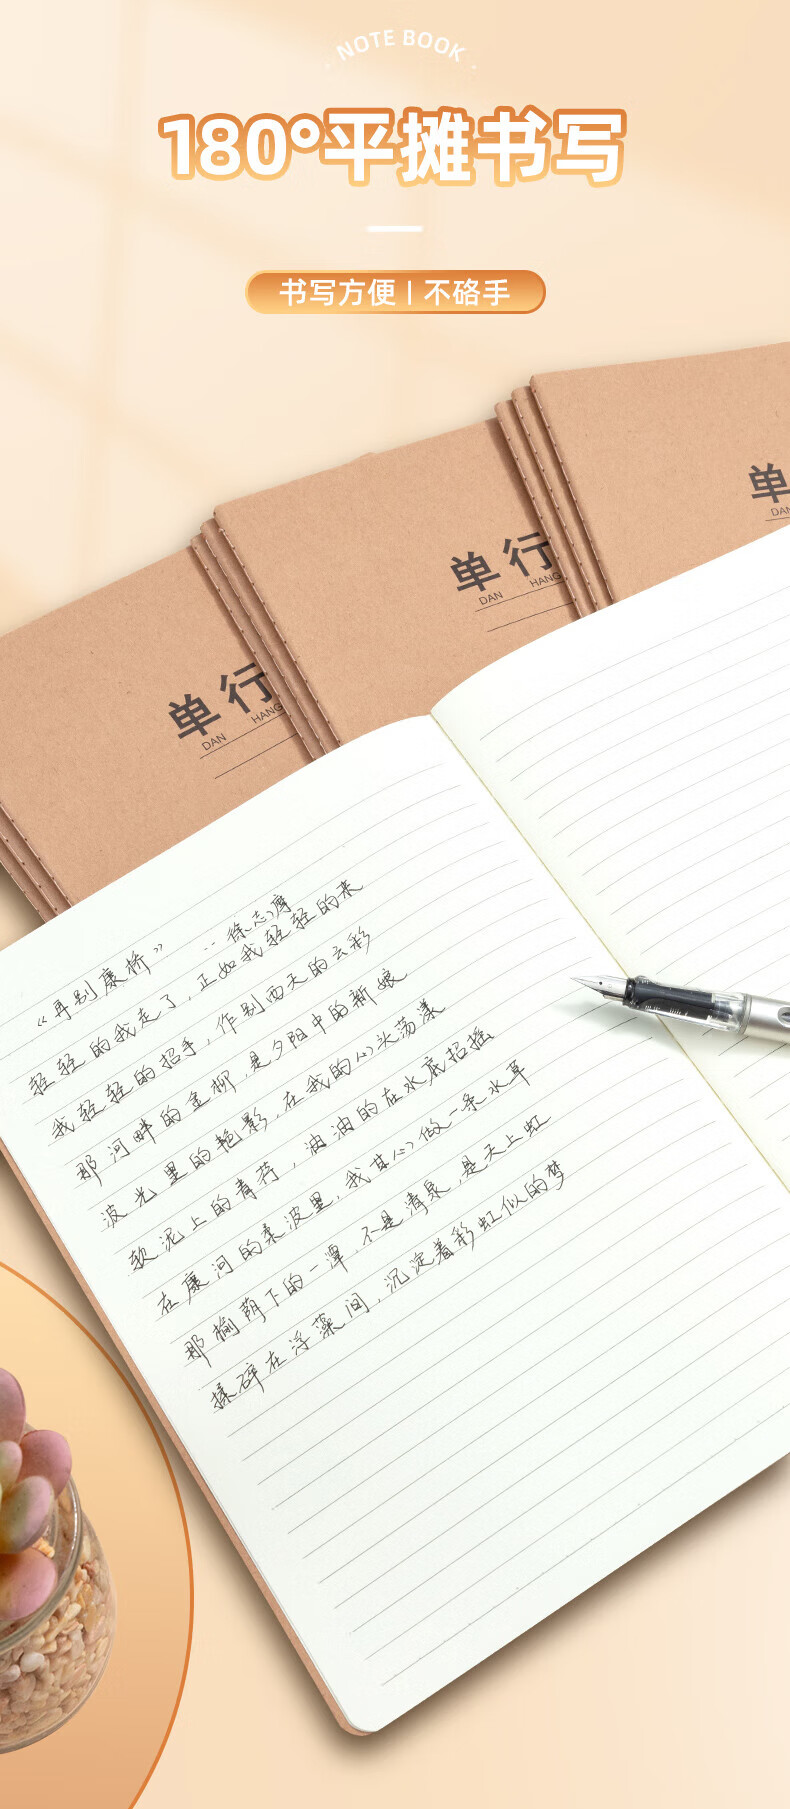 NOTE BOOK
180°平摊书写
书写方便 | 不硌手
单
DAN
单行
DAN HANG
单行
DAN HANG
《再别康桥》 ··徐志摩
轻轻的我走了，正如我轻轻的来
我轻轻的招手，作别西天的云彩
那河畔的金柳，是夕阳中的新娘
波光里的艳影，在我的心头荡漾
软泥上的青荇，油油的在水底招摇
在康河的柔波里，我甘心做一条水草
那榆荫下的一潭，不是清泉，是天上虹
揉碎在浮藻间，沉淀着彩虹似的梦